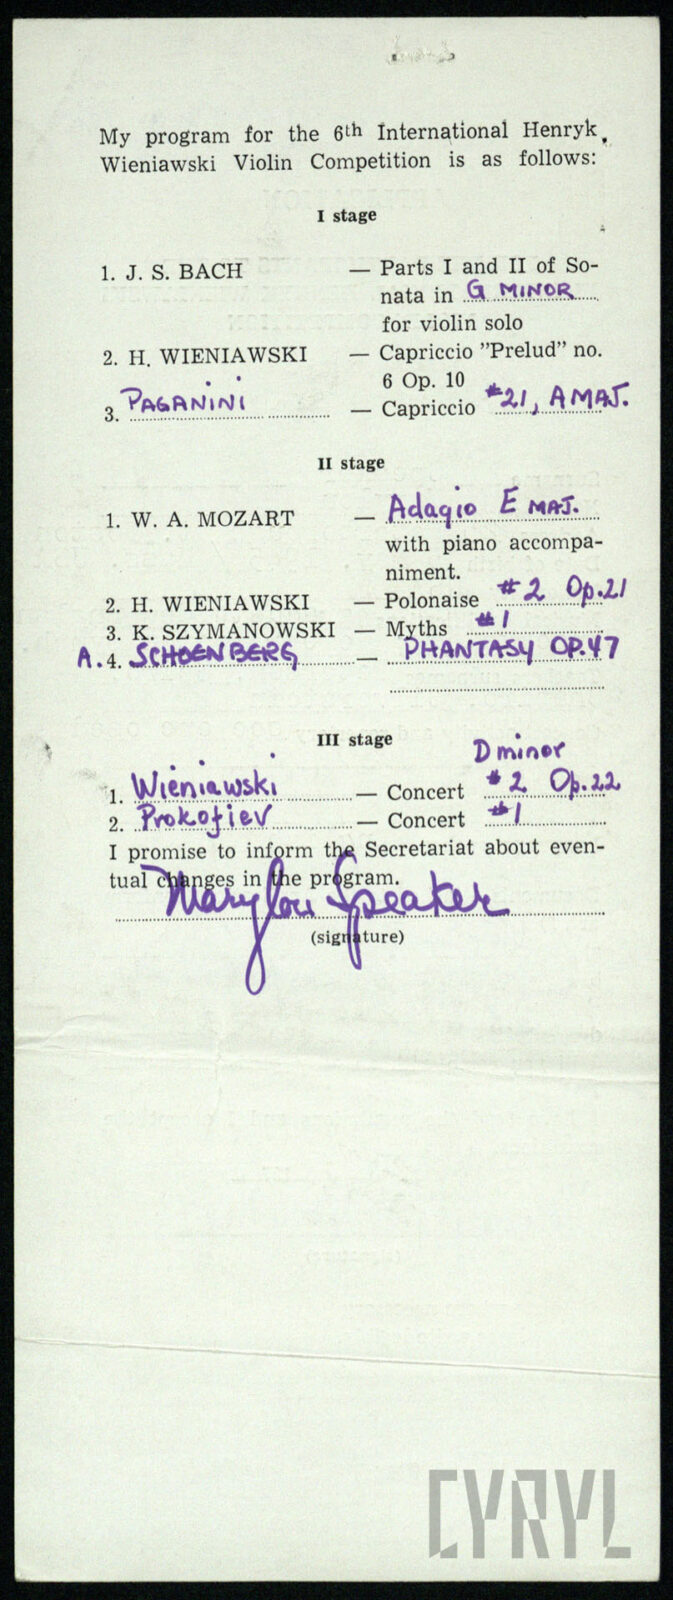 My program for the 6th International Henryk
Wieniawski Violin Competition is as follows:
I stage
1. J. S. BACH — Parts I and II of So-
nata in G MINOR
for violin solo
2. H. WIENIAWSKI — Capriccio "Prelud" no.
6 Op. 10
3. PAGANINI — Capriccio #21, A MAJ.
II stage
1. W. A. MOZART — Adagio E MAJ.
with piano accompa-
niment.
2. H. WIENIAWSKI — Polonaise #2 Op.21
3. K. SZYMANOWSKI — Myths #1
A. 4. SCHOENBERG — PHANTASY OP.47
III stage
D minor
1. Wieniawski — Concert #2 Op.22
2. Prokofiev — Concert #1
I promise to inform the Secretariat about even-
tual changes in the program.
Marylou Speaker
(signature)
CYRYL